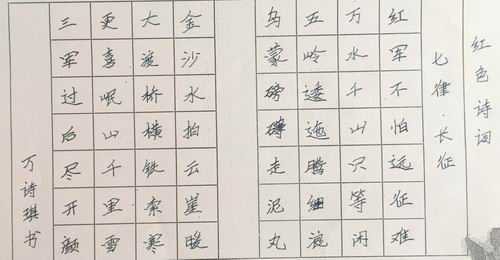 红色诗词
七律·长征
红军不怕远征难
万水千山只等闲
五岭逶迤腾细浪
乌蒙磅礴走泥丸
金沙水拍云崖暖
大渡桥横铁索寒
更喜岷山千里雪
三军过后尽开颜
万诗琪书